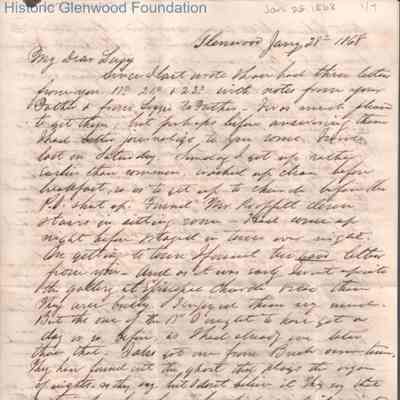 Historic Glenwood Foundation
Jan 28 1868
1/7
Glenwood Jany 28th 1868
My Dear
Since I last wrote I have had three letters
from you 11th 21st & 22d with notes from your
Mother & from to Mother. I was much pleased
to get them, but perhaps before answering them
I had better journalize to you some. I wrote
last on Saturday. Sunday I got up rather
earlier than common, washed up clean before
breakfast, so as to get up to church before the
P.O. shut up. Found Mr Moffett down
stairs in sitting room. Had come up
night before & stayed in town over night.
On getting to town I found the good letter
from you. And as it was early went up into
the gallery at Episcopal Church &
They are bully. I enjoyed them very much.
But the one of the I ought to have got a
day or so before as I had already one later
than that. Also got one from
They have found out the ghost that plays the organ
of nights, so they say but I don't believe it. They say that